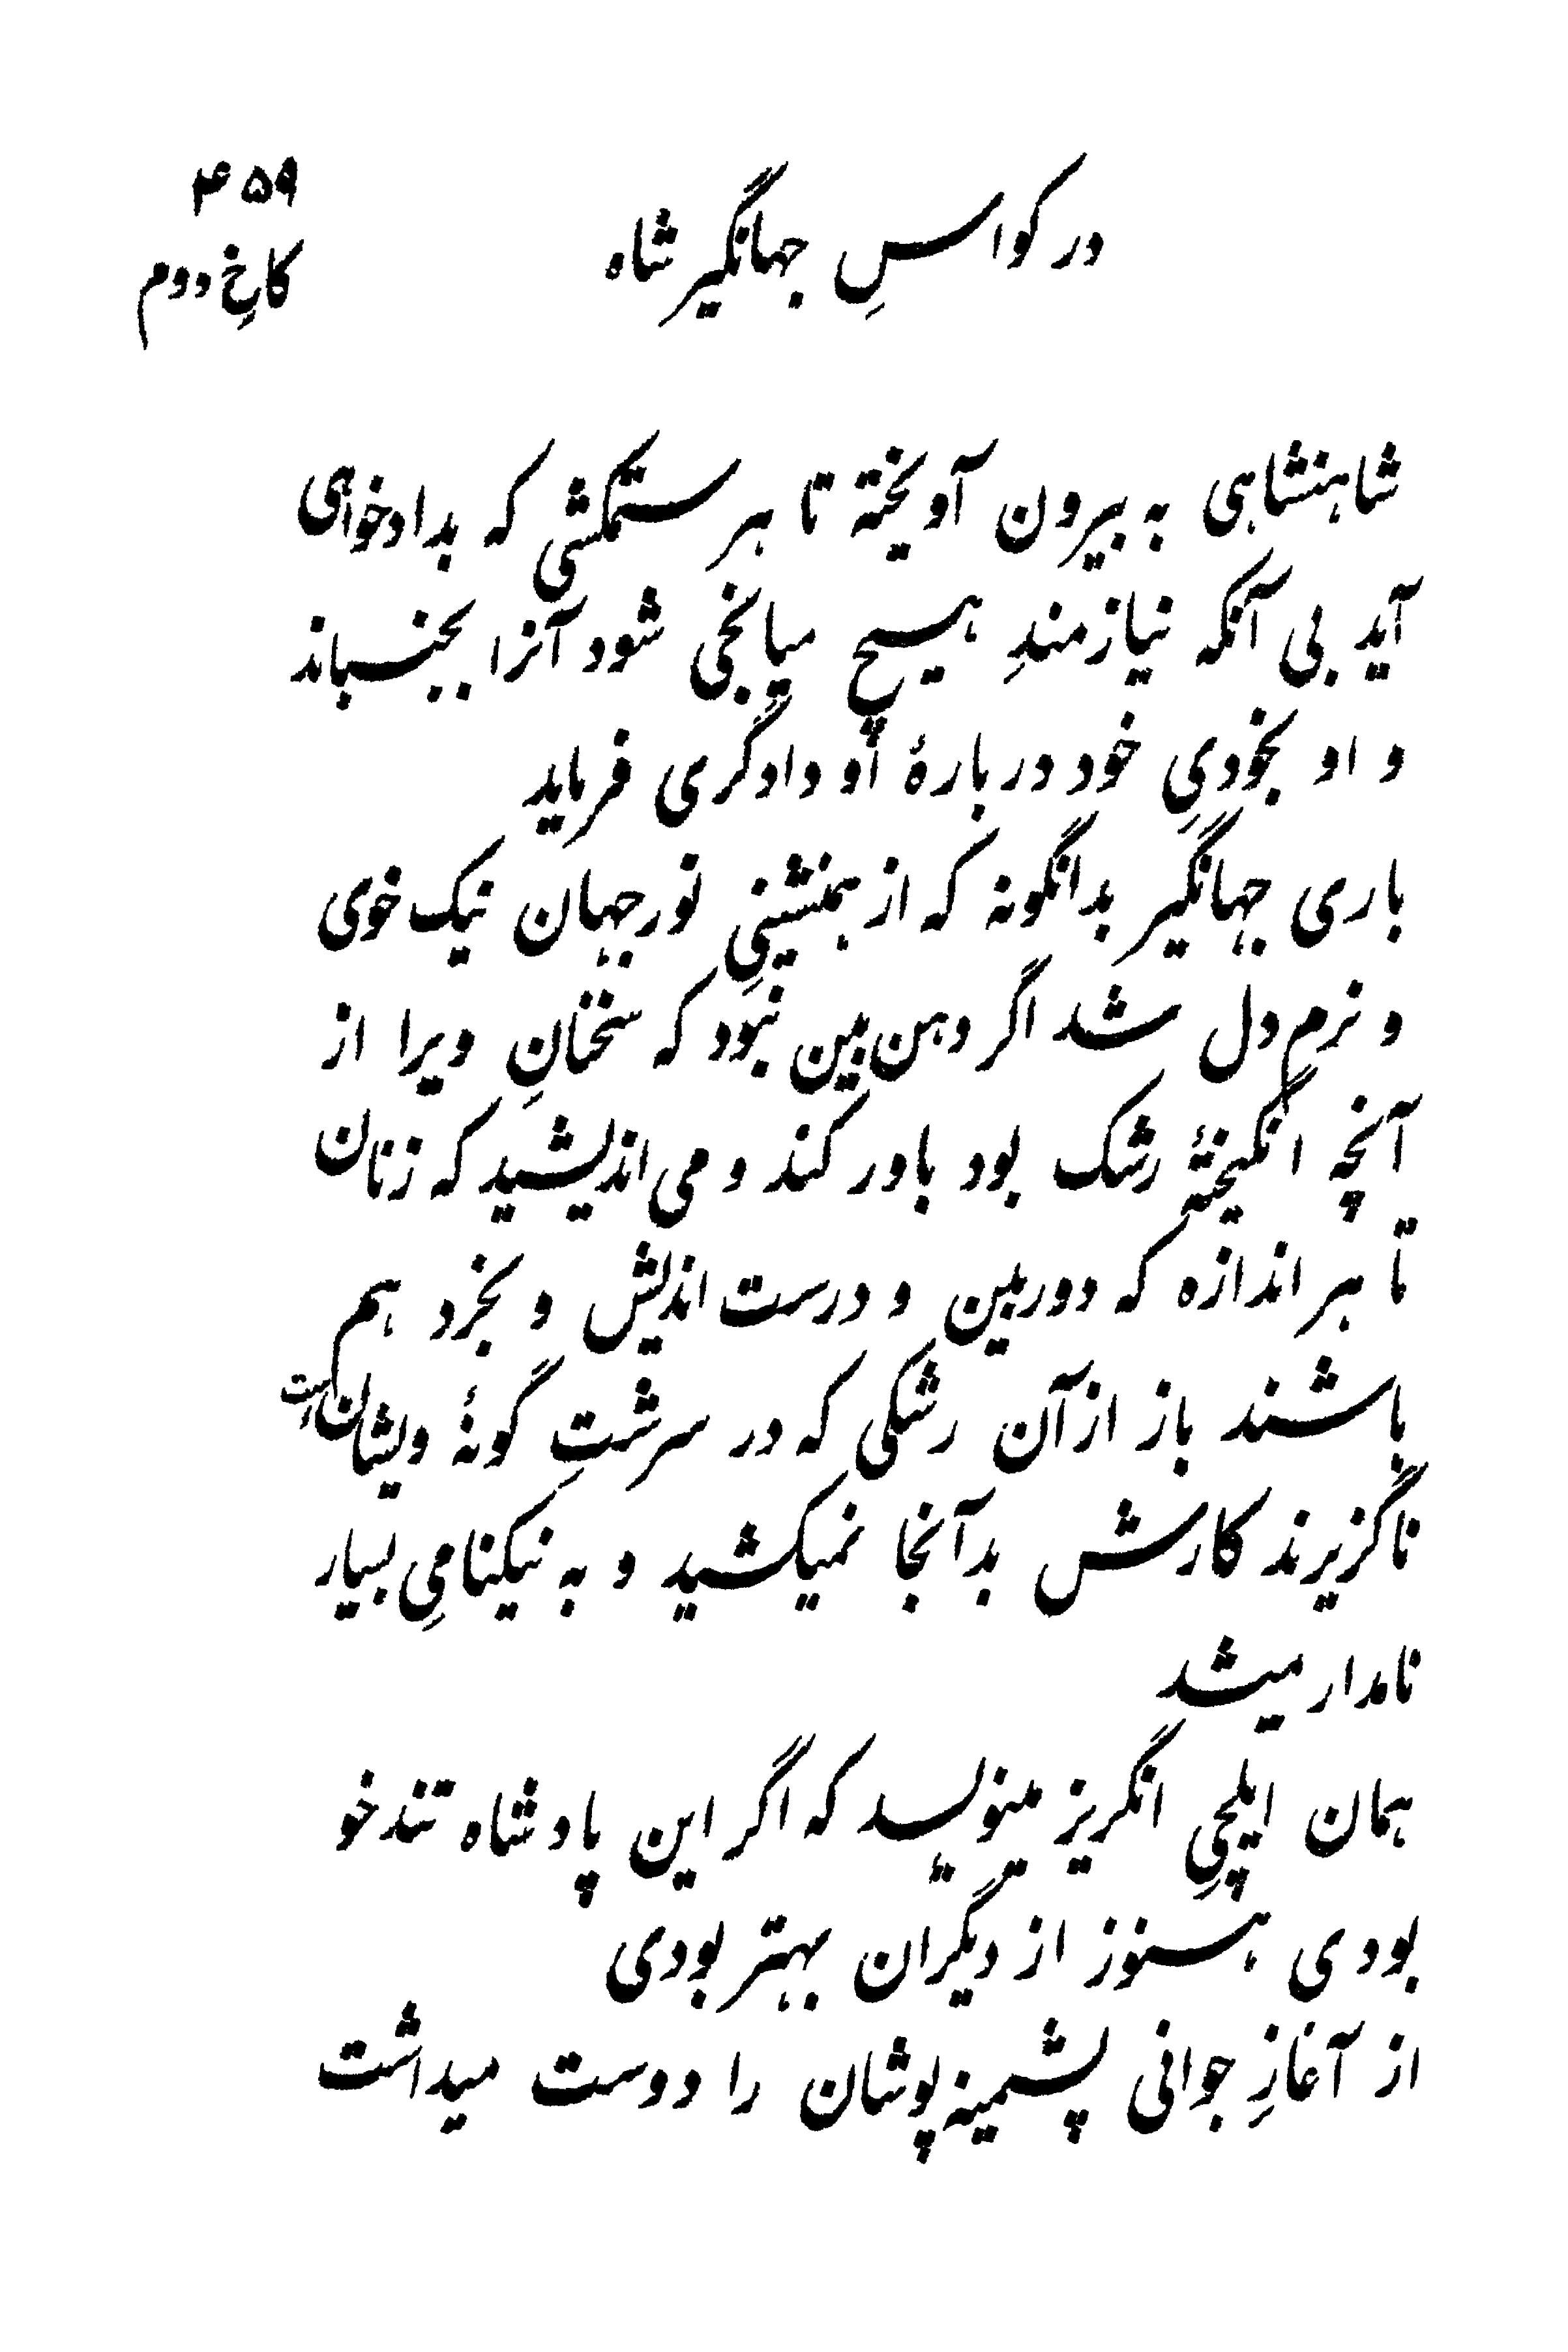 ۴۵۹
در کواسِ جهانگیر شاه
کاخِ دوم
شاهنشاهی به بیرون آویخته تا هر ستمکشی که بدادخواهی
آید بی آنکه نیازمندِ هیچ میانجی شود آنرا بجنباند
و او بخودیِ خود دربارهٔ او دادگری فرماید
باری جهانگیر بدانگونه که از همنشینیِ نورجهان نیک خوی
و نرم دل شد اگر دهن بین نبود که سخنانِ ویرا از
آنچه انگیختهٔ رشک بود باور کند و می اندیشید که زنان
تا هر اندازه که دوربین و درست اندیش و بخرد هم
باشند باز از آن رشکی که در سرشتِ گونهٔ ویشان است
ناگزیرند کارش بدآنجا نمیکشید و به نیکنامیِ بسیار
نامدار میشد
همان ایلچیِ انگریز مینویسد که اگر این پادشاه تندخو
بودی هنوز از دیگران بهتر بودی
از آغازِ جوانی پشمینه پوشان را دوست میداشت